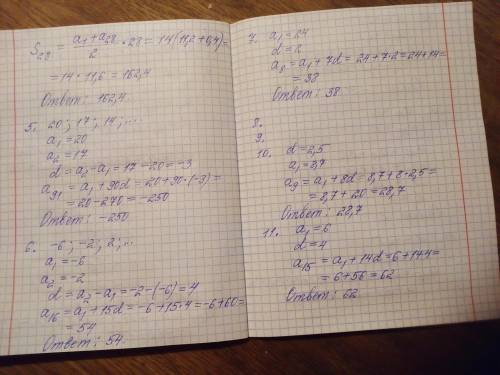 S₂₈ = (a₁ + a₂₈)/2 · 28 = 14(11,2 + 0,4) =
= 14 · 11,6 = 162,4
Ответ: 162,4.
5. 20; 17; 14; ...
a₁ = 20
a₂ = 17
d = a₂ - a₁ = 17 - 20 = -3
a₉₁ = a₁ + 90d = 20 + 90 · (-3) =
= 20 - 270 = -250
Ответ: -250
6. -6; -2; 2; ...
a₁ = -6
a₂ = -2
d = a₂ - a₁ = -2 - (-6) = 4
a₁₆ = a₁ + 15d = -6 + 15 · 4 = -6 + 60 =
= 54
Ответ: 54.
7. a₁ = 24
d = 2
a₈ = a₁ + 7d = 24 + 7 · 2 = 24 + 14 =
= 38
Ответ: 38.
8.
9.
10. d = 2,5
a₁ = 8,7
a₉ = a₁ + 8d = 8,7 + 8 · 2,5 =
= 8,7 + 20 = 28,7
Ответ: 28,7
11. a₁ = 6
d = 4
a₁₅ = a₁ + 14d = 6 + 14·4 =
= 6 + 56 = 62
Ответ: 62